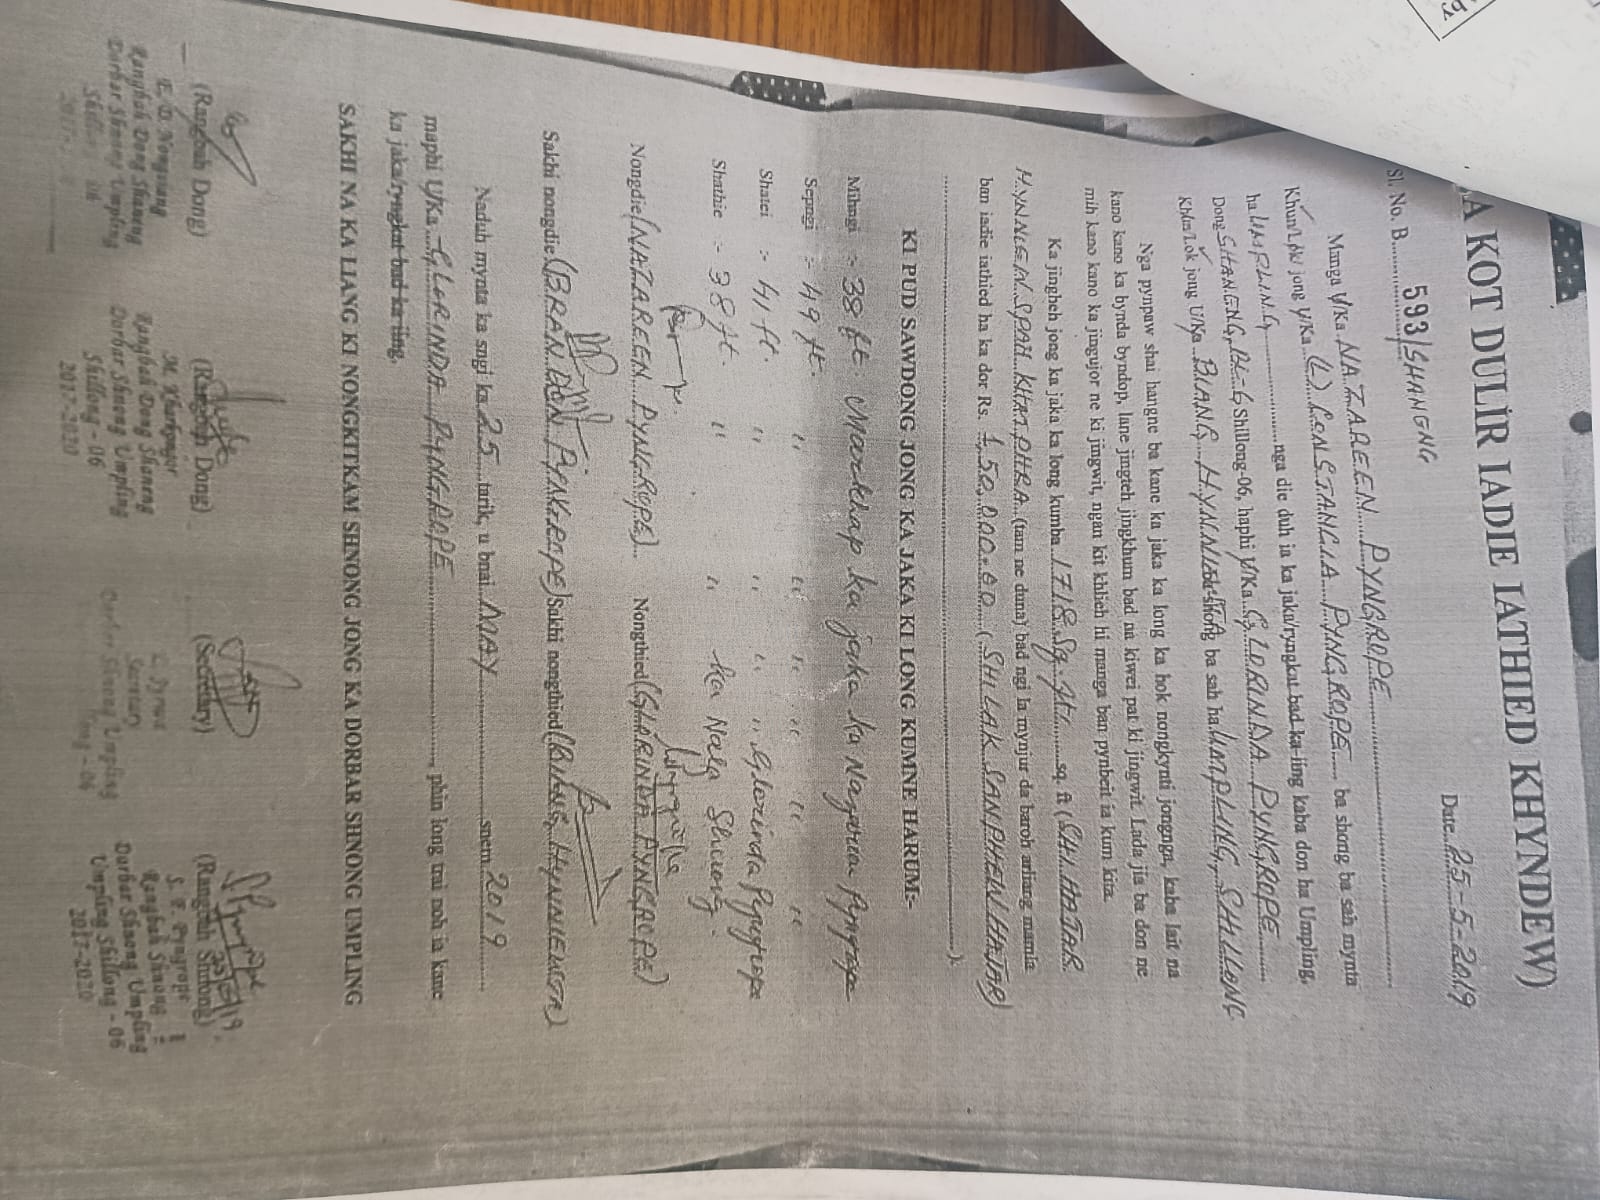 A KOT DULİR IADIE IATHIED KHYNDEW)
Sl. No. B. 593/SHANGNG Date. 25-5-2019
Manga U/Ka NAZAREEN PYNGROPE
Khun/Lok jong U/Ka (L) CONSTANCIA PYNGROPE ba shong ba sah mynta
ha UMPLING nga die duh ia ka jaka/ryngkat bad ka iing kaba don ha Umpling,
Dong SHANGNG, BL-6 Shillong-06, haphi U/Ka GLORINDA PYNGROPE
Khun/Lok jong U/Ka BIANG HYNNIEWTA ba shong ba sah ha UMPLING, SHILLONG
Nga pynpaw shai hangne ba kane ka jaka ka long ka hok nongkynti jongnga, kaba lait na
kano kano ka bynda byndop, lane jingteh jingkhum bad na kiwei pat ki jingwit. Lada jia ba don ne
mih kano kano ka jingujor ne ki jingwit, ngan kit khlieh hi manga ban pynbeit ia kum kita.
Ka jingheh jong ka jaka ka long kumba 1718 Sq. ft. sq. ft (SHI HAJAR
HYNNIEW SPAH KHATPHRA (tam ne duna) bad ngi la mynjur da baroh arliang mamla
ban iadie iathied ha ka dor Rs. 1,50,000.00 (SHI LAK SANPHEW HAJAR)
)
KI PUD SAWDONG JONG KA JAKA KI LONG KUMNE HARUM:-
Mihngi :- 38 ft. Markhap ka jaka ka Nazaria Pyngrope
Sepngi :- 49 ft. " " " " " "
Shatei :- 41 ft. " " " " Glorinda Pyngrope
Shathie :- 38 ft. " " ka Nala Shnong.
Nongdie (NAZAREEN PYNGROPE) Nongthied (GLORINDA PYNGROPE)
Sakhi nongdie (BRANDON PYNGROPE) Sakhi nongthied (BIANG HYNNIEWTA)
Naduh mynta ka sngi ka 25 tarik, u bnai MAY snem 2019
maphi U/Ka GLORINDA PYNGROPE, phin long trai noh ia kane
ka jaka/ryngkat bad ka iing.
SAKHI NA KA LIANG KI NONGKITKAM SHNONG JONG KA DORBAR SHNONG UMPLING
(Rangbah Dong) (Rangbah Dong) (Secretary) (Rangbah Shnong)
25/5/19
Rangbah Dong Shaneng
Darbar Shnong Umpling
M. Kharkongor
Rangbah Dong Shaneng
Darbar Shnong Umpling
Shillong - 06
2017-2020
Secretary
S. F. Pyngrope
Rangbah Shnong
Darbar Shnong Umpling
Umpling Shillong - 06
2017-2020